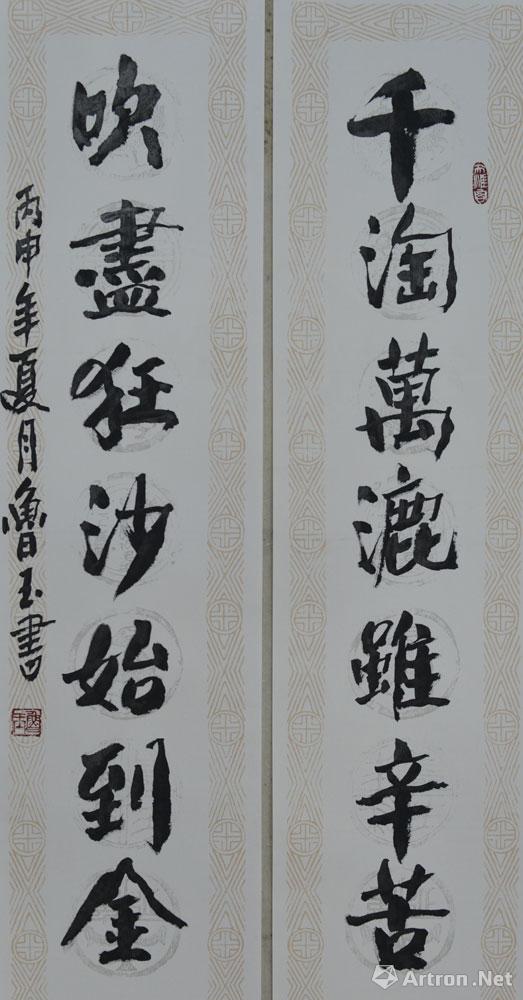 千淘萬漉雖辛苦
吹盡狂沙始到金
丙申年夏月魯玉書
Artron.Net